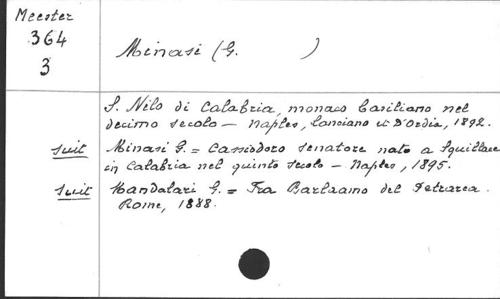 Meester
364
3
Minasi (G. )
S. Nilo di Calabria, monaco Basiliano nel
decimo secolo – Naples, Lanciano et D'Ordia, 1892.
suit Minasi G. = Cassiodoro senatore nato a Squillace
in Calabria nel quinto secolo – Naples, 1895.
suit Mandalari G. = Fra Barlaamo del Petrarca.
Rome, 1888.